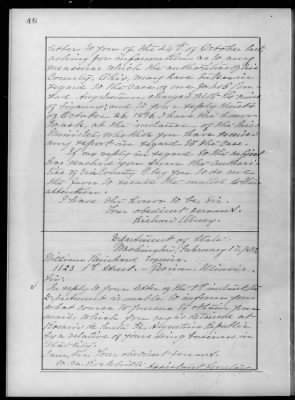 48
letter to you of the 24th of October last
asking for information as to any
measures which the authorities of
County, Ohio, may have taken in
regard to the case of one Jacob
charged with the crime
of bigamy, and to your reply thereto
of October 26, 1896, I have the honor
to ask, at the instance of the
Minister, whether you have received
any report in regard to the case.
If no reply in regard to the subject
has reached you from the authori-
ties of County I beg you to do me
the favor to recall the matter to their
attention.
I have the honor to be, Sir,
Your obedient servant,
Richard Olney.
Department of State,
Washington, February 1, 189
William Esquire,
1823 Street, Peoria, Illinois.
Sir:
In reply to your letter of the instant, the
Department is unable to inform you
what course to pursue to obtain your
mails which you say is detained at
Rosario de Santa Fe, Argentine Republic
by a relative of yours doing business in
that city.
I am, Sir, Your obedient servant,
W. W. Rockhill
Assistant Secretary